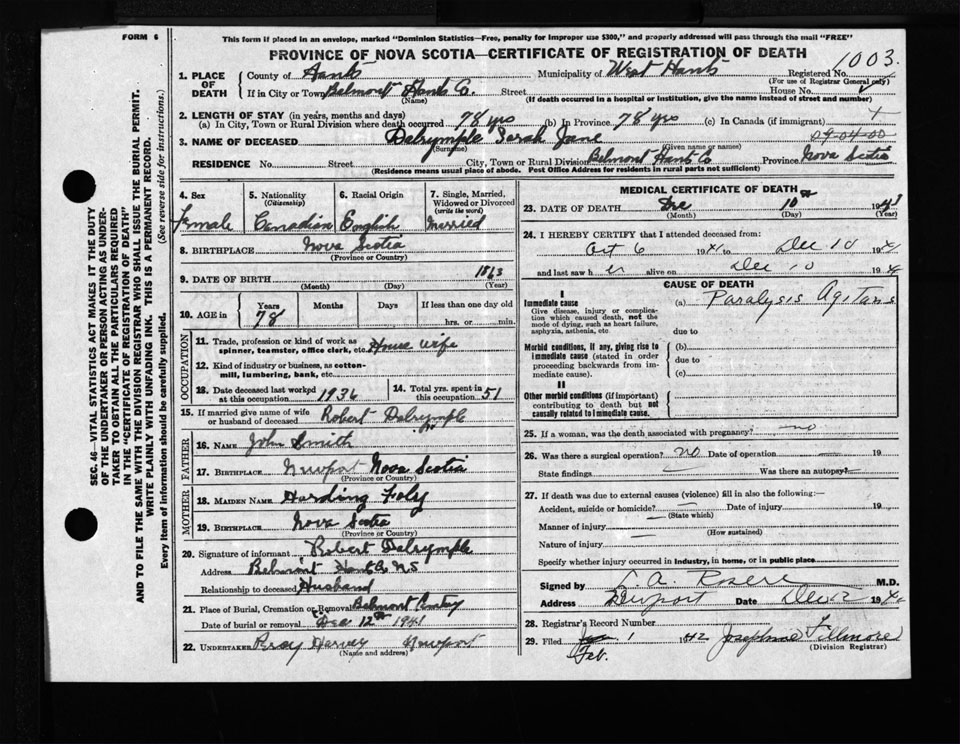 FORM 6
This form if placed in an envelope, marked "Dominion Statistics—Free, penalty for improper use $300," and properly addressed will pass through the mail "FREE"
PROVINCE OF NOVA SCOTIA—CERTIFICATE OF REGISTRATION OF DEATH
1003
1. PLACE OF DEATH
County of Hants Municipality of West Hants Registered No.
(For use of Registrar General only)
If in City or Town Belmont Hants Co. Street House No.
(Name) (If death occurred in a hospital or institution, give the name instead of street and number)
2. LENGTH OF STAY (in years, months and days)
(a) In City, Town or Rural Division where death occurred 78 yrs (b) In Province 78 yrs (c) In Canada (if immigrant)
3. NAME OF DECEASED Dalrymple Sarah Jane 09-04-00
(Surname) (Given name or names)
RESIDENCE No. Street City, Town or Rural Division Belmont Hants Co Province Nova Scotia
(Residence means usual place of abode. Post Office Address for residents in rural parts not sufficient)
4. Sex
5. Nationality
(Citizenship)
6. Racial Origin
7. Single, Married, Widowed or Divorced
(write the word)
Female Canadian English Married
8. BIRTHPLACE Nova Scotia
(Province or Country)
9. DATE OF BIRTH 1863
(Month) (Day) (Year)
10. AGE in
Years Months Days If less than one day old
78 hrs. or min.
OCCUPATION
11. Trade, profession or kind of work as
spinner, teamster, office clerk, etc. House Wife
12. Kind of industry or business, as cotton-
mill, lumbering, bank, etc.
13. Date deceased last worked
at this occupation 1936
14. Total yrs. spent in
this occupation 51
15. If married give name of wife
or husband of deceased Robert Dalrymple
FATHER
16. NAME John Smith
17. BIRTHPLACE Newport Nova Scotia
(Province or Country)
MOTHER
18. MAIDEN NAME Harding Foly
19. BIRTHPLACE Nova Scotia
(Province or Country)
20. Signature of informant Robert Dalrymple
Address Belmont Hants N.S
Relationship to deceased Husband
21. Place of Burial, Cremation or Removal Belmont
Date of burial or removal Dec 12th 1941
22. UNDERTAKER Harvey Newport
(Name and address)
MEDICAL CERTIFICATE OF DEATH
23. DATE OF DEATH Dec 10 19
(Month) (Day) (Year)
24. I HEREBY CERTIFY that I attended deceased from:
Oct 6 1941 to Dec 10 1941
and last saw h er alive on Dec 10 19
CAUSE OF DEATH
I
Immediate cause
Give disease, injury or complica-
tion which caused death, not the
mode of dying, such as heart failure,
asphyxia, asthenia, etc
(a) Paralysis Agitans
due to
Morbid conditions, if any, giving rise to
immediate cause (stated in order
proceeding backwards from im-
mediate cause).
(b)
due to
(c)
II
Other morbid conditions (if important)
contributing to death but not
causally related to immediate cause.
25. If a woman, was the death associated with pregnancy? no
26. Was there a surgical operation? no Date of operation 19
State findings Was there an autopsy?
27. If death was due to external causes (violence) fill in also the following:—
Accident, suicide or homicide? Date of injury 19
(State which)
Manner of injury
(How sustained)
Nature of injury
Specify whether injury occurred in industry, in home, or in public place
Signed by M.D.
Address Newport Date Dec 19
28. Registrar's Record Number
29. Filed 1 1942 Josephine Fillmore
Feb. (Division Registrar)
SEC. 46—VITAL STATISTICS ACT MAKES IT THE DUTY
OF THE UNDERTAKER OR PERSON ACTING AS UNDER-
TAKER TO OBTAIN ALL THE PARTICULARS REQUIRED
IN THE "CERTIFICATE OF REGISTRATION OF DEATH"
AND TO FILE THE SAME WITH THE DIVISION REGISTRAR WHO SHALL ISSUE THE BURIAL PERMIT.
WRITE PLAINLY WITH UNFADING INK. THIS IS A PERMANENT RECORD.
Every item of information should be carefully supplied. (See reverse side for instructions.)